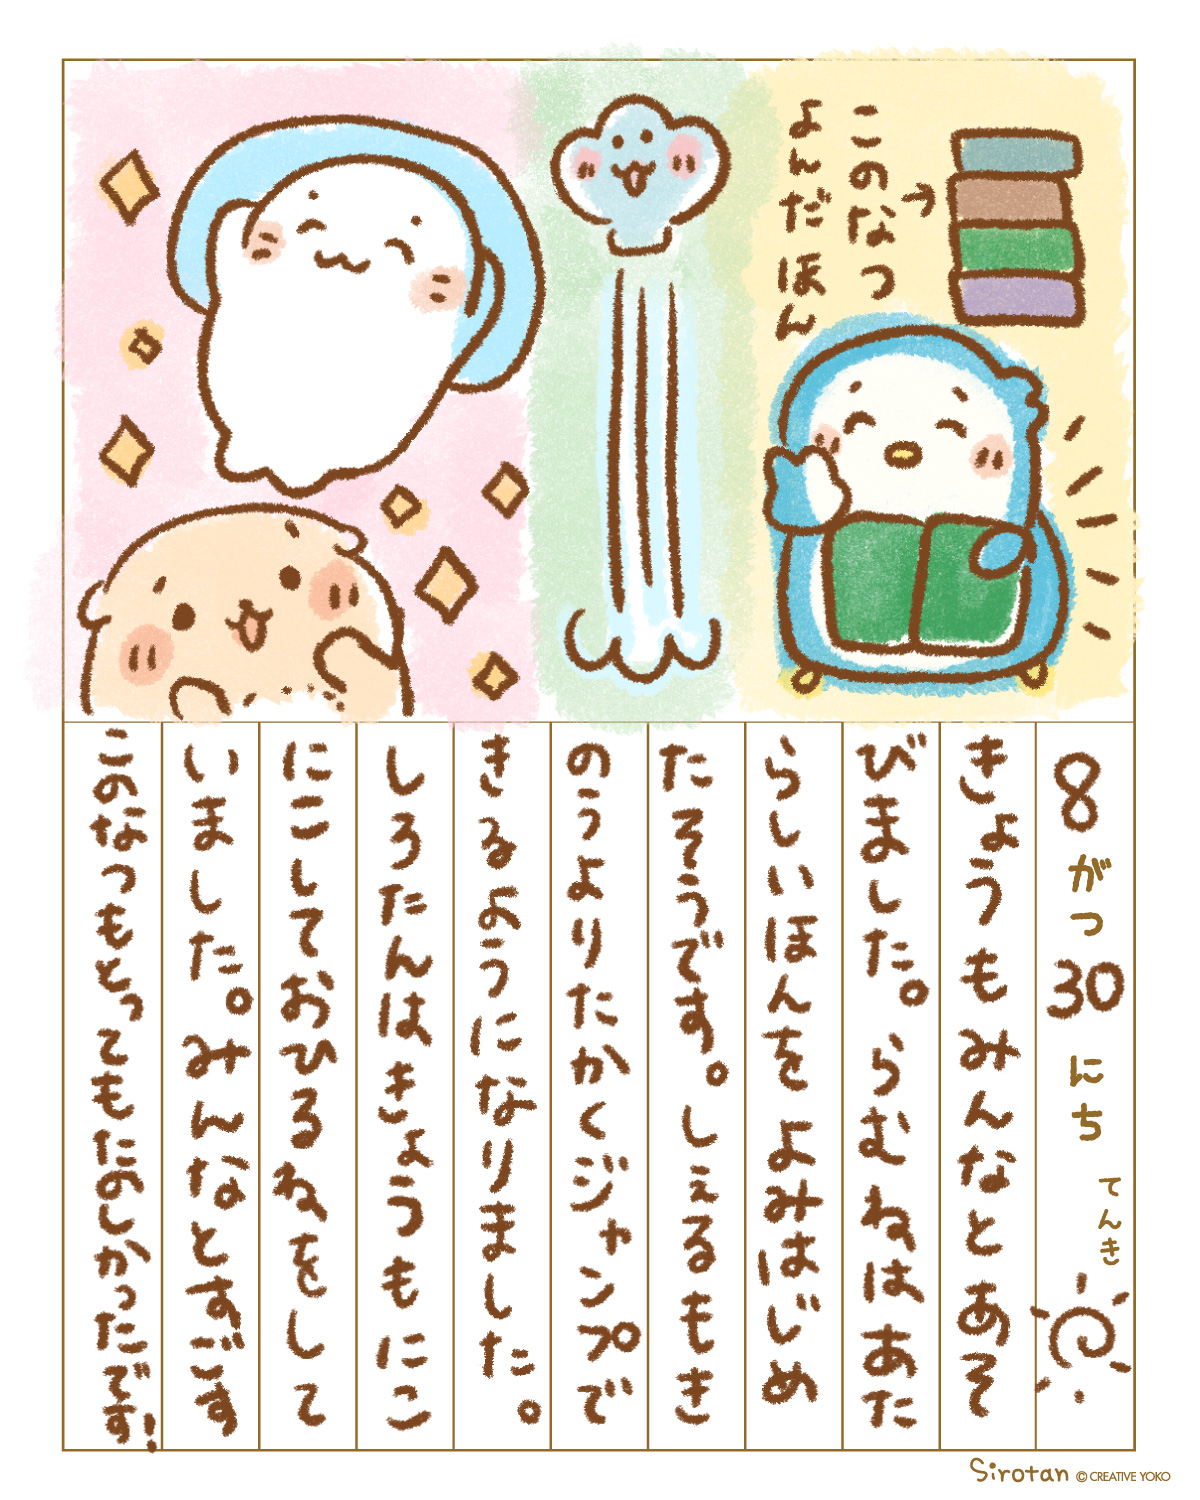 このなつ
よんだほん
→
8がつ30にち てんき
きょうもみんなとあそ
びました。らむねはあた
らしいほんをよみはじめ
たそうです。しぇるもき
のうよりたかくジャンプで
きるようになりました。
しろたんはきょうもにこ
にこしておひるねをして
いました。みんなとすごす
このなつもとってもたのしかったです!
Sirotan © CREATIVE YOKO